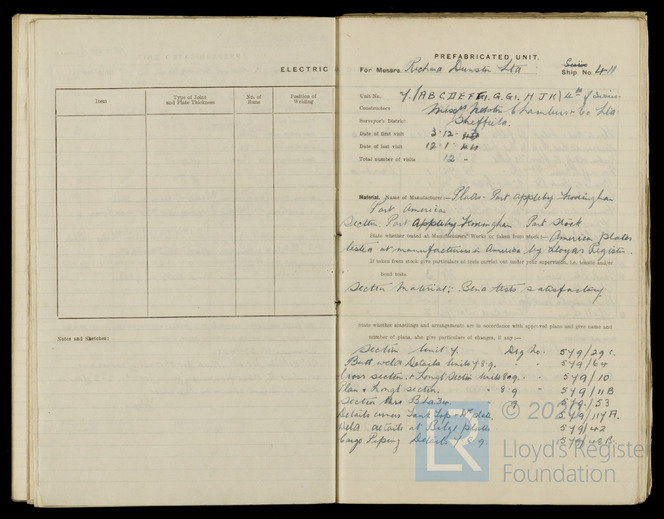 ELECTRIC
Item
Type of Joint
and Plate Thickness
No. of
Runs
Position of
Welding
Notes and Sketches:
PREFABRICATED UNIT.
For Messrs. Richard Dunston Ltd
Ship No. 411
Unit No. Y. (A B C D E F G. G1, H J K) 4th of Series
Constructors Messrs Newton Chambers & Co Ltd
Surveyor's District Sheffield.
Date of first visit 3.12.
Date of last visit 12.1.
Total number of visits 12 -
Material. Name of Manufacturer:- Plates. Part Appleby Frodingham
Part America
Section. Part Appleby Frodingham Part Stock
State whether tested at Manufacturers' Works or taken from stock:- America plates
tested at manufacturers America by Lloyds Register.
If taken from stock give particulars of tests carried out under your supervision, i.e. tensile and/or
bend tests.
Section Material: Bend tests satisfactory
State whether scantlings and arrangements are in accordance with approved plans and give name and
number of plans, also give particulars of changes, if any:-
Section Unit Y. Drg No. 5Y9/29C.
Butt weld Details Units 5Y9/64
Cross section & Longl Section Units 5Y9/10
Plan & Longl section. 5Y9/11B
Section thro Bhd 34 5Y9/53
Details corners Tank Top 5Y9/117A.
Details at Bilge plates 5Y9/42
Cargo Piping Details
© 2020
Lloyd's Register
Foundation
LR